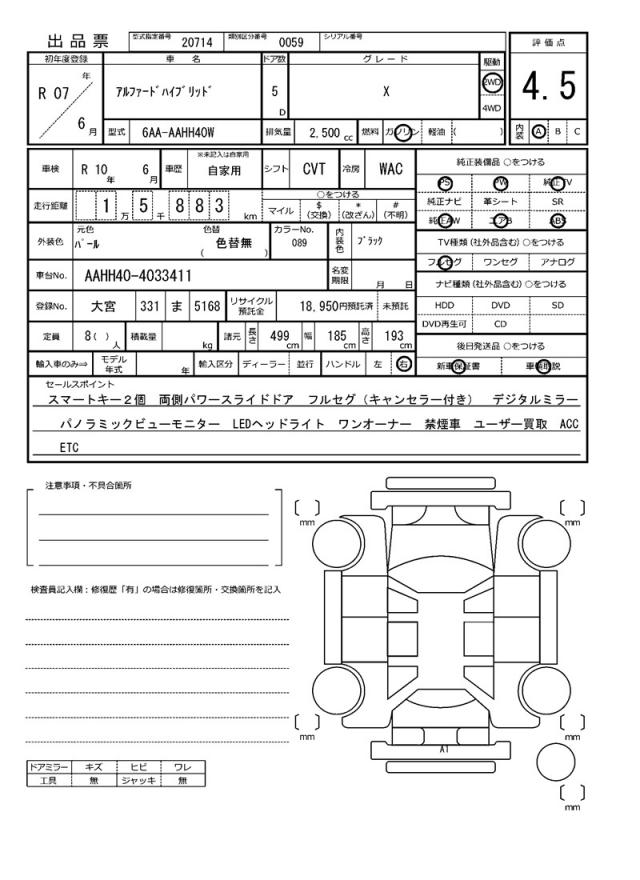 出品票 型式指定番号 20714 類別区分番号 0059 シリアル番号
評価点
4.5
内装 A B C
初年度登録 車名 ドア数 グレード 駆動
R 07 年 6月 アルファードハイブリッド 5 D X 2WD 4WD
型式 6AA-AAHH40W 排気量 2,500 cc 燃料 ガソリン 軽油 ( )
車検 R 10年 6月 車歴 ※未記入は自家用 自家用 シフト CVT 冷房 WAC
走行距離 1万 5千 8 8 3 km ○をつける マイル $(交換) *(改ざん) #(不明)
外装色 元色 パール 色替 ( 色替無 ) カラーNo. 089 内装色 ブラック
車台No. AAHH40-4033411 名変期限 月 日
登録No. 大宮 331 ま 5168 リサイクル預託金 18,950円預託済 未預託
定員 8( )人 積載量 kg 諸元 長さ 499cm 幅 185cm 高さ 193cm
輸入車のみ⇒ モデル年式 年 輸入区分 ディーラー 並行 ハンドル 左 右
純正装備品 ○をつける
PS PW 純正TV
純正ナビ 革シート SR
純正AW エアB ABS
TV種類(社外品含む) ○をつける
フルセグ ワンセグ アナログ
ナビ種類(社外品含む) ○をつける
HDD DVD SD
DVD再生可 CD
後日発送品 ○をつける
新車保証書 車輌取説
セールスポイント
スマートキー2個 両側パワースライドドア フルセグ(キャンセラー付き) デジタルミラー
パノラミックビューモニター LEDヘッドライト ワンオーナー 禁煙車 ユーザー買取 ACC
ETC
注意事項・不具合箇所
検査員記入欄：修復歴「有」の場合は修復箇所・交換箇所を記入
ドアミラー キズ ヒビ ワレ
工具 無 ジャッキ 無
mm
mm
mm
mm
A1
mm